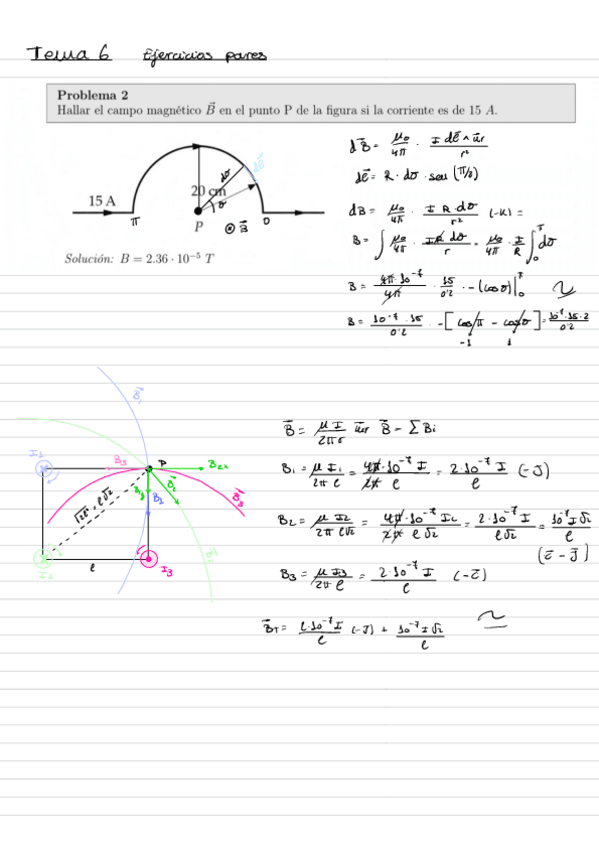 Tema 6 Ejercicios pares
Problema 2
Hallar el campo magnético B⃗ en el punto P de la figura si la corriente es de 15 A.
15 A
20 cm
dθ
θ
π
P
⊙ B⃗
0
Solución: B = 2.36 · 10⁻⁵ T
dB⃗ = μ₀/4π · I dl⃗ ∧ u⃗r / r²
dl⃗ = R · dθ · sen (π/2)
dB = μ₀/4π · I R · dθ / r² (-k) =
B = ∫ μ₀/4π · I R dθ / r = μ₀/4π · I/R ∫₀^π dθ
B = 4π·10⁻⁷/4π · 15/0'2 · -(cos θ)|₀^π
B = 10⁻⁷·15/0'2 · -[cos π - cos 0] = 10⁻⁷·15·2/0'2
-1 1
I₂
B₃
P
B₂ₓ
B₂
B⃗₃
√2l² = l√2
l
I₃
B⃗ = μ I/2πr u⃗r B⃗ = Σ Bi
B₁ = μ I₁/2π l = 4π·10⁻⁷ I/2π l = 2·10⁻⁷ I/l (-J)
B₂ = μ I₂/2π l√2 = 4π·10⁻⁷ I₂/2π l√2 = 2·10⁻⁷ I/l√2 = 10⁻⁷ I √2/l
(i⃗ - j⃗)
B₃ = μ I₃/2π l = 2·10⁻⁷ I/l (-i⃗)
B⃗T = 2·10⁻⁷ I/l (-J) + 10⁻⁷ I √2/l